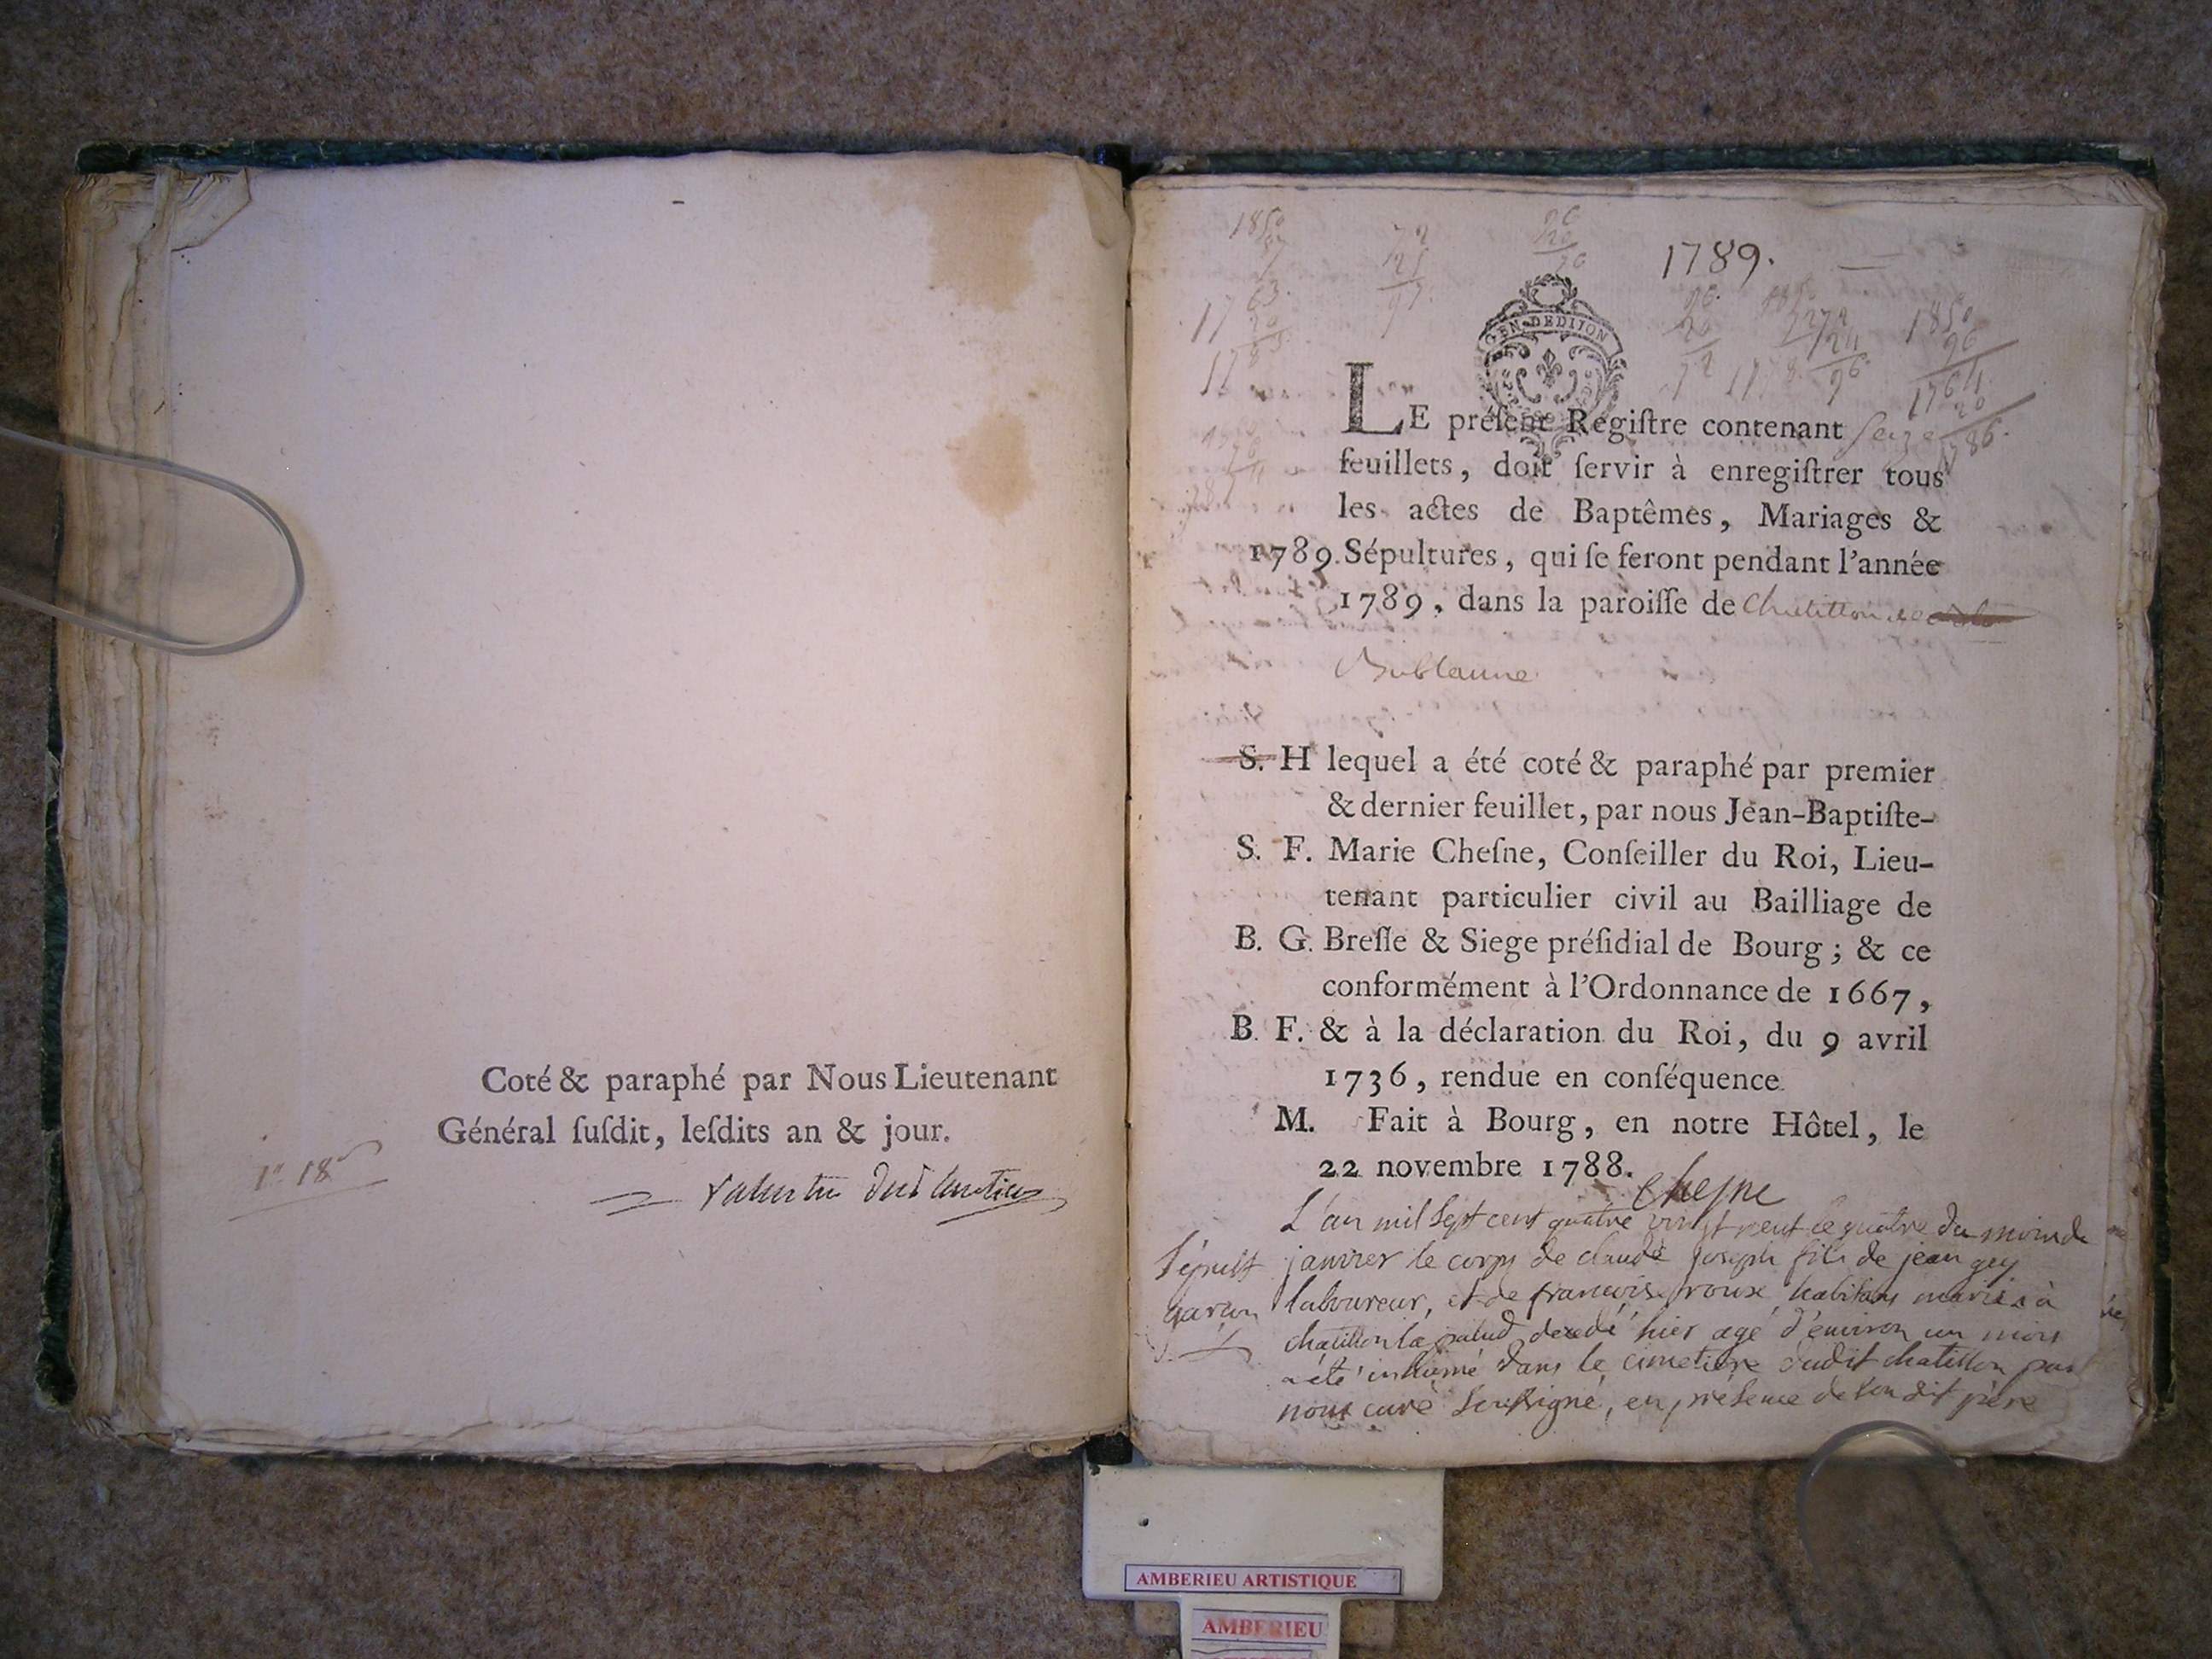 Coté & paraphé par Nous Lieutenant
Général ſuſdit, leſdits an & jour.
1789.
GEN. DE DIJON
LE préſent Regiſtre contenant ſeize
feuillets, doit ſervir à enregiſtrer tous
les actes de Baptêmes, Mariages &
1789. Sépultures, qui ſe feront pendant l'année
1789, dans la paroiſſe de Chatillon
S. H lequel a été coté & paraphé par premier
& dernier feuillet, par nous Jean-Baptiſte-
S. F. Marie Cheſne, Conſeiller du Roi, Lieu-
tenant particulier civil au Bailliage de
B. G. Breſſe & Siege préſidial de Bourg ; & ce
conformément à l'Ordonnance de 1667,
B. F. & à la déclaration du Roi, du 9 avril
1736, rendue en conſéquence
M. Fait à Bourg, en notre Hôtel, le
22 novembre 1788.
Cheſne
L'an mil sept cent quatre vingt neuf le quatre du mois de
janvier le corps de claude joseph fils de jean gey
laboureur, et de francoise roux habitans mariés à
chatillon la palud decedé hier agé d'environ un mois
a été inhumé dans le cimetiere dudit chatillon par
nous curé soussigné, en présence de son dit père
AMBERIEU ARTISTIQUE
AMBERIEU